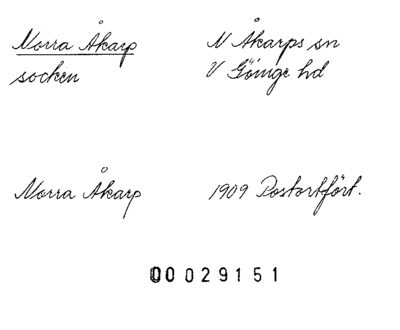 Norra Åkarp
socken
N Åkarps sn
V Göinge hd
Norra Åkarp
1909 Postortfört.
00029151